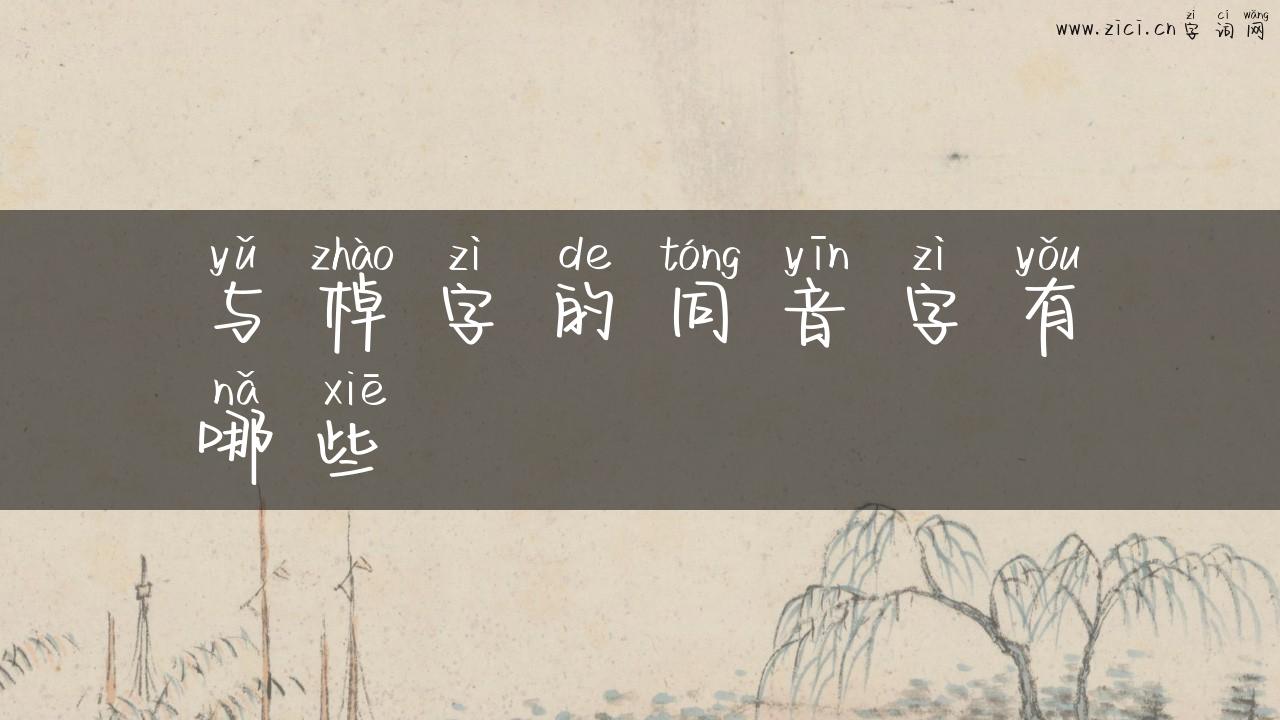 zì cí wǎng
www.zici.cn 字词网
yǔ zhào zì de tóng yīn zì yǒu
与棹字的同音字有
nǎ xiē
哪些